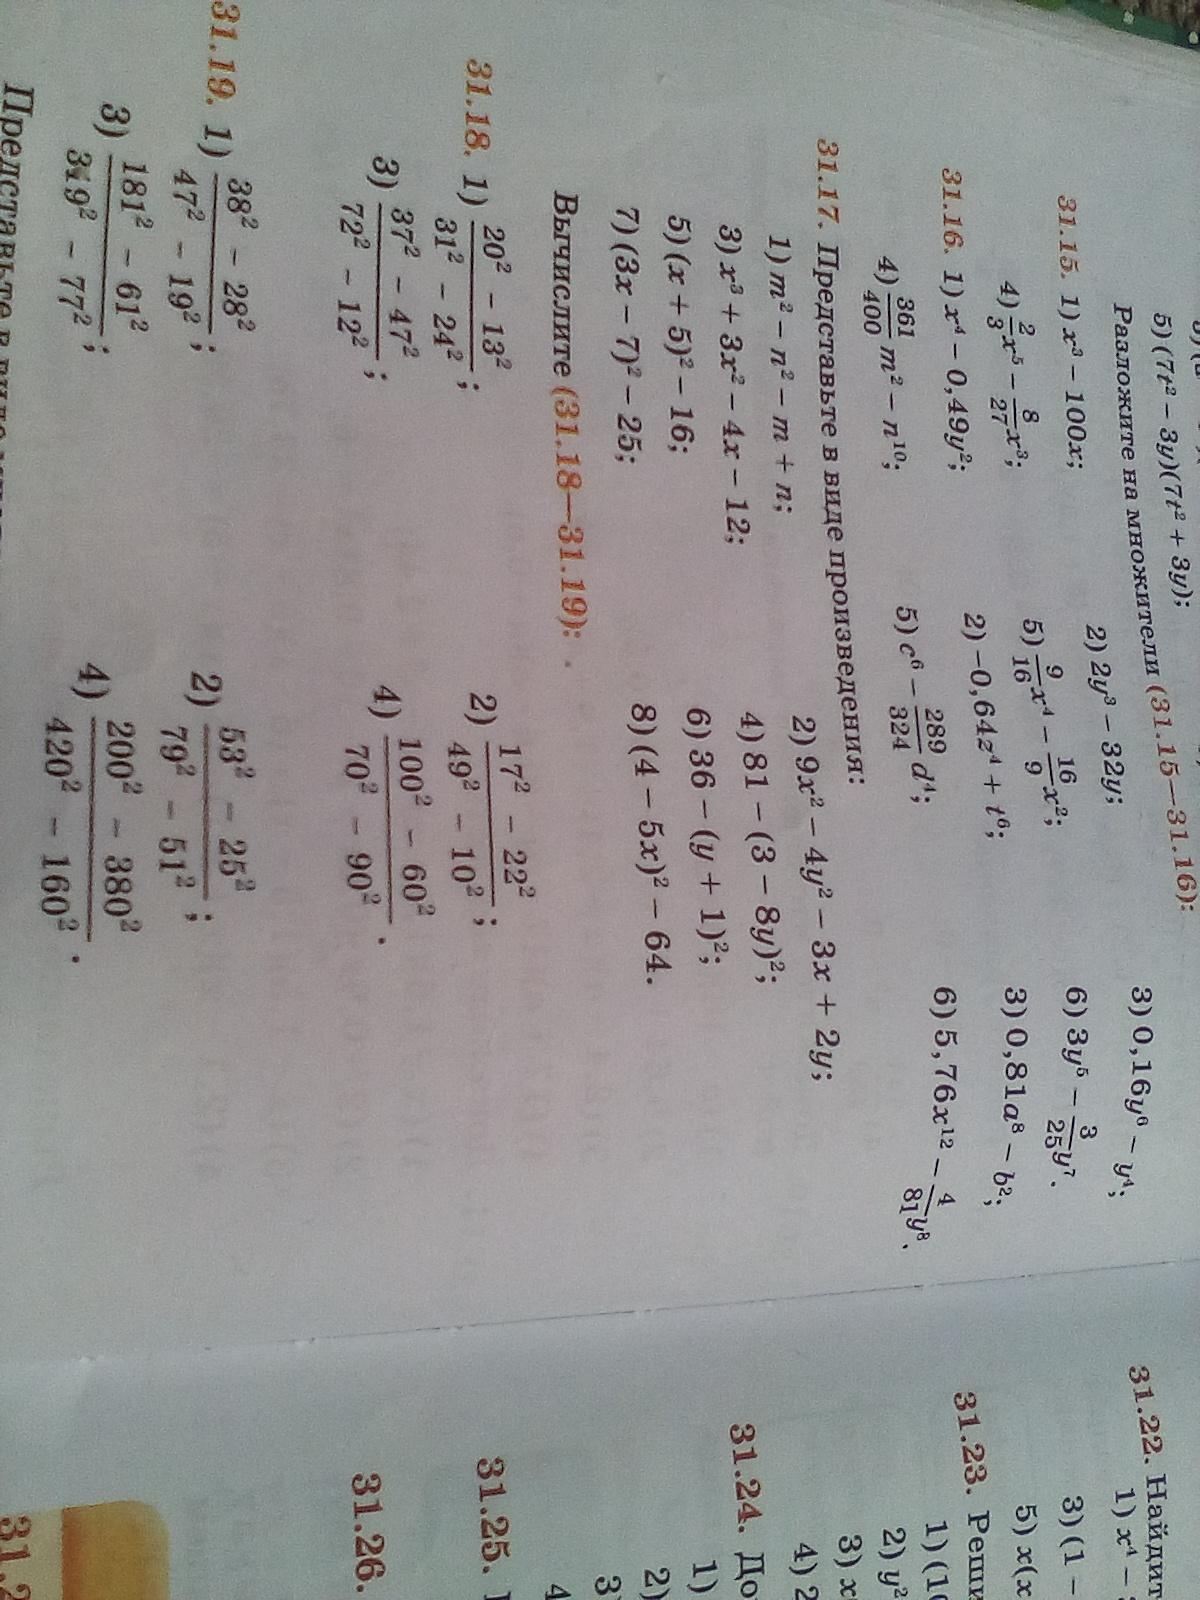 5) (7t² − 3y)(7t² + 3y);
Разложите на множители (31.15—31.16):
31.15. 1) x³ − 100x; 2) 2y³ − 32y; 3) 0,16y⁶ − y⁴;
4) 2/3 x⁵ − 8/27 x³; 5) 9/16 x⁴ − 16/9 x²; 6) 3y⁵ − 3/25 y⁷.
31.16. 1) x⁴ − 0,49y²; 2) −0,64z⁴ + t⁶; 3) 0,81a⁸ − b²;
4) 361/400 m² − n¹⁰; 5) c⁶ − 289/324 d⁴; 6) 5,76x¹² − 4/81 y⁸.
31.17. Представьте в виде произведения:
1) m² − n² − m + n; 2) 9x² − 4y² − 3x + 2y;
3) x³ + 3x² − 4x − 12; 4) 81 − (3 − 8y)²;
5) (x + 5)² − 16; 6) 36 − (y + 1)²;
7) (3x − 7)² − 25; 8) (4 − 5x)² − 64.
Вычислите (31.18—31.19):
31.18. 1) (20² − 13²)/(31² − 24²); 2) (17² − 22²)/(49² − 10²);
3) (37² − 47²)/(72² − 12²); 4) (100² − 60²)/(70² − 90²).
31.19. 1) (38² − 28²)/(47² − 19²); 2) (53² − 25²)/(79² − 51²);
3) (181² − 61²)/(319² − 77²); 4) (200² − 380²)/(420² − 160²).
Представьте в виде
31.22. Найдит
1) x⁴ −
3) (1 −
5) x(x
31.23. Реши
1) (1
2) y²
3) x
4) 2
31.24. До
1)
2)
3
4
31.25.
31.26.
31.2